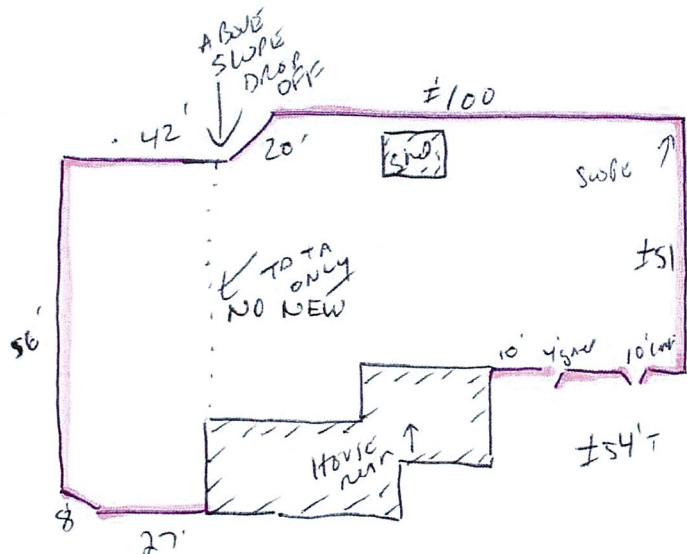 ABOVE
SLOPE
DROP
OFF
±100
42'
20'
SHED
SLOPE
±51
TD TA
ONLY
NO NEW
56'
10'
4' gate
10'
HOUSE
REAR
±54'T
8'
27'